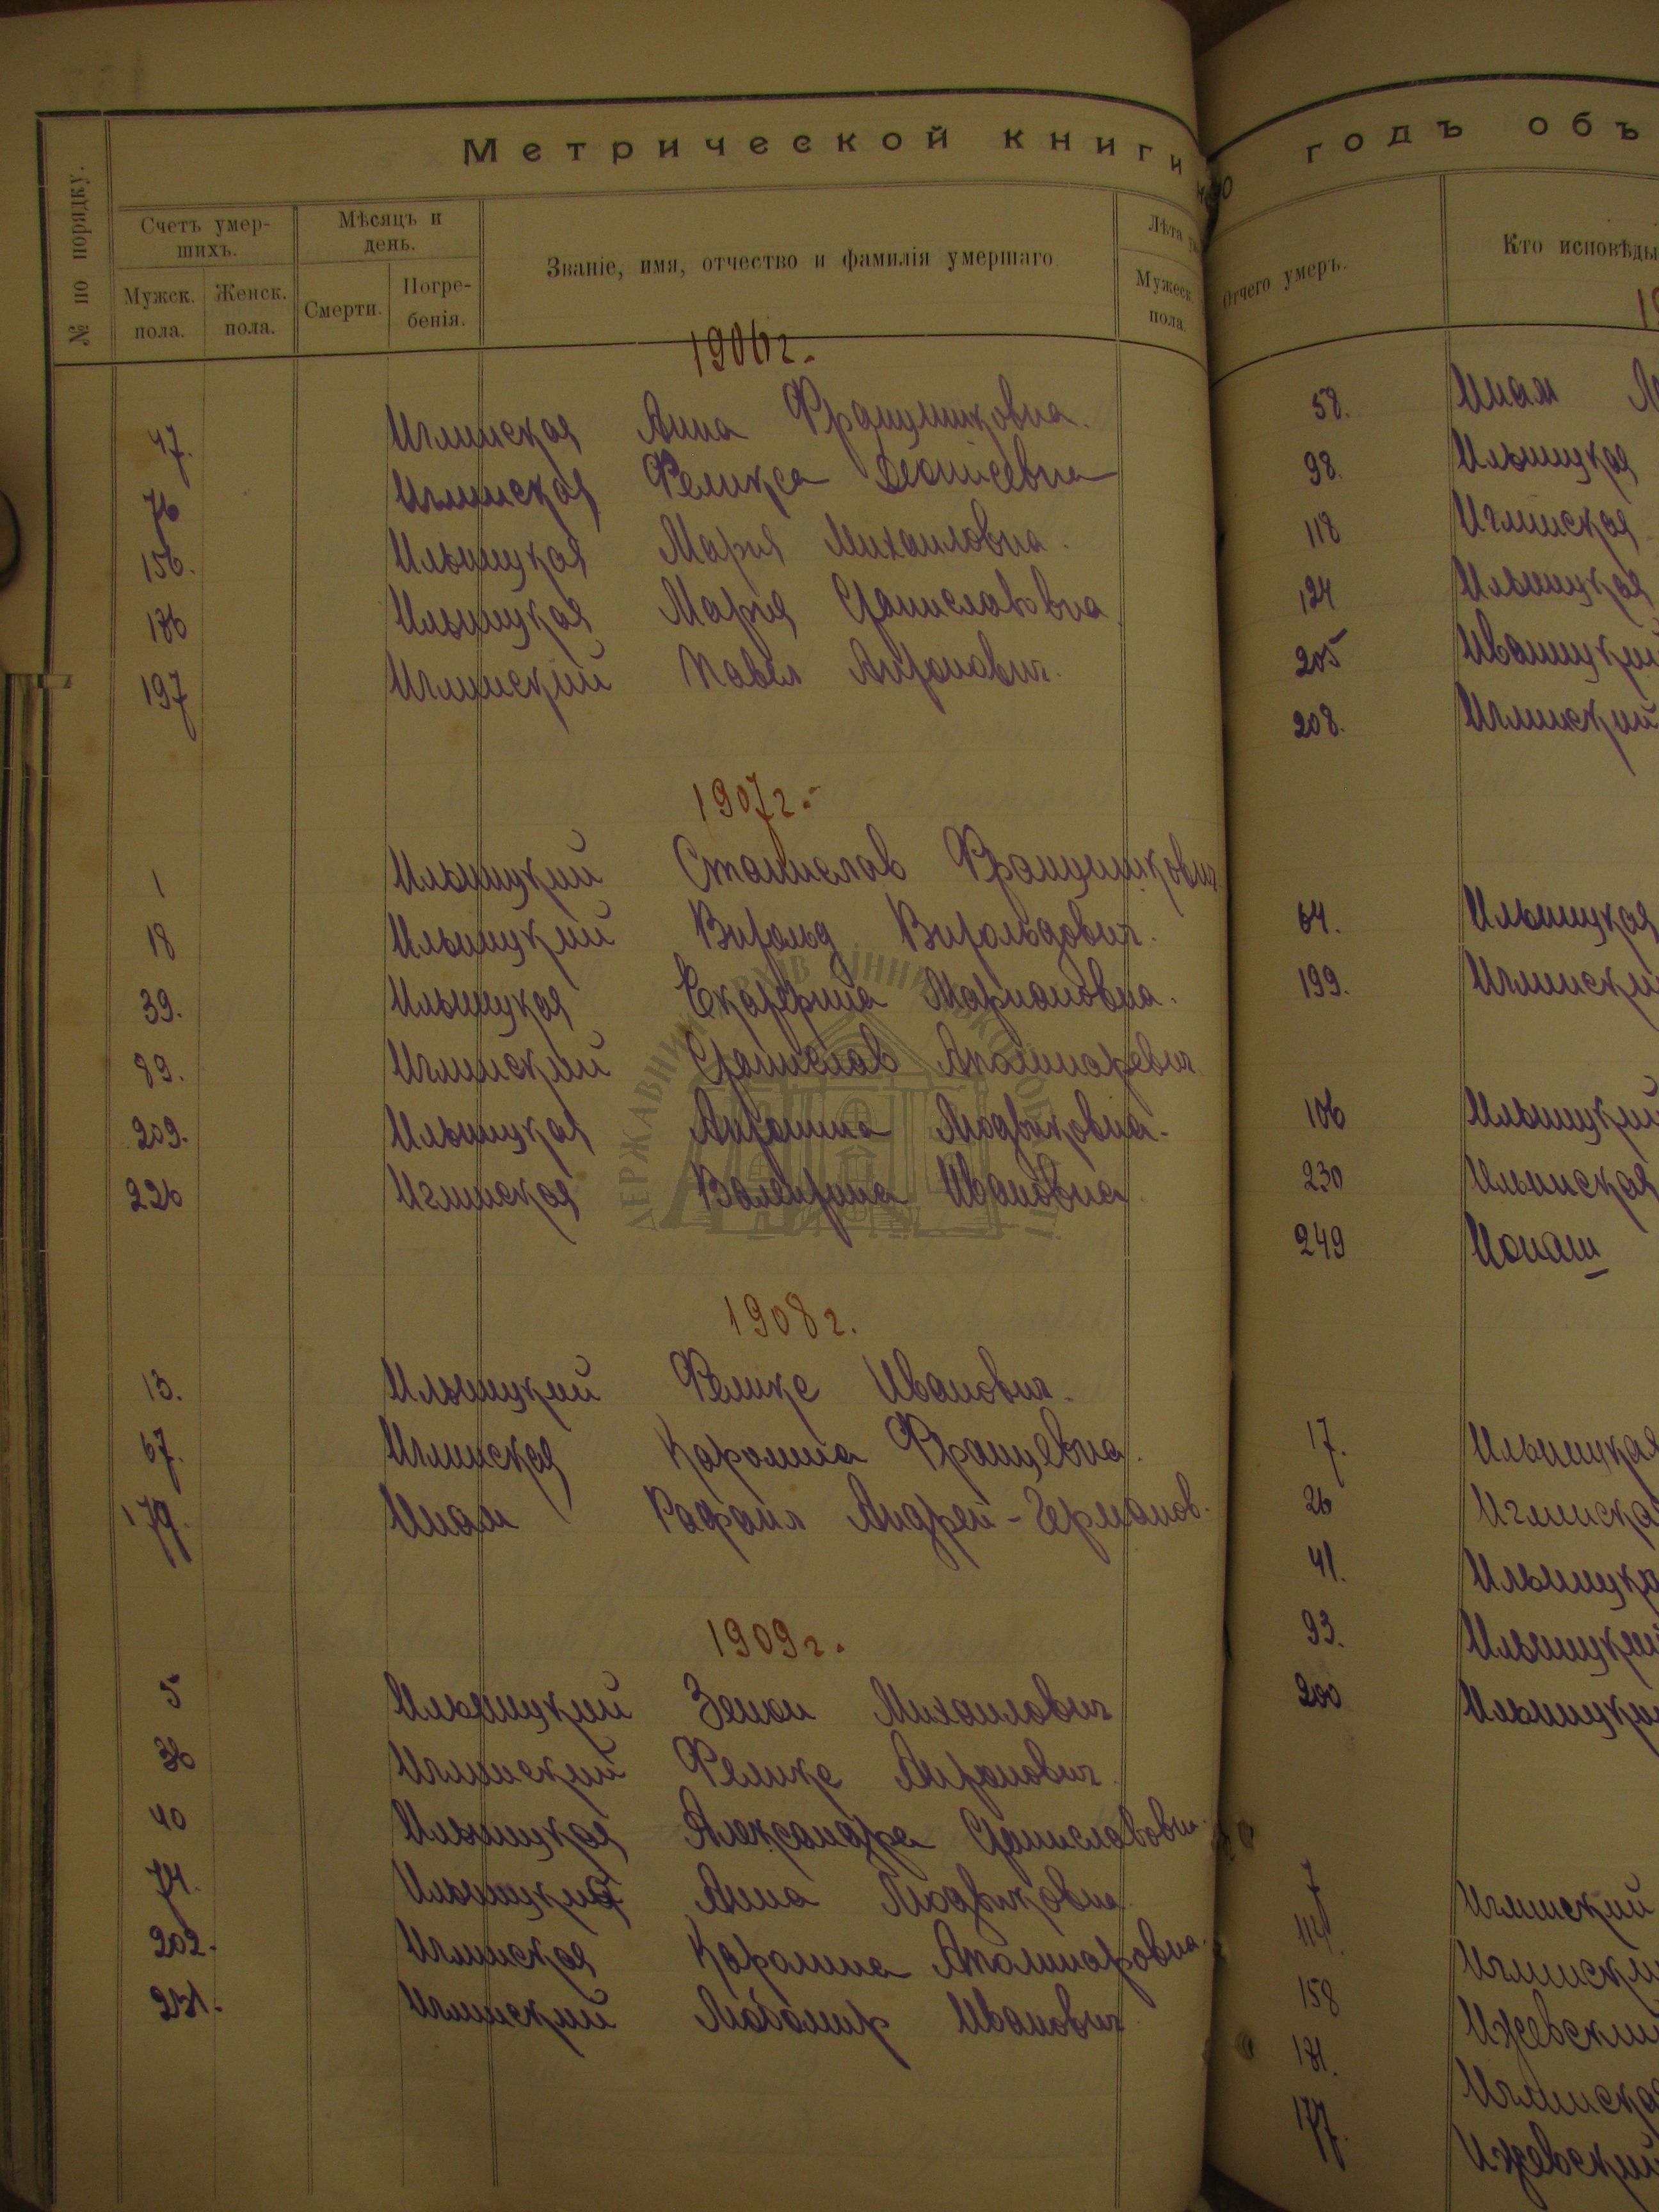 Метрической книги на
№ по порядку.
Счетъ умер-
шихъ.
Мужск.
пола.
Женск.
пола.
Мѣсяцъ и
день.
Смерти.
Погре-
бенія.
Званіе, имя, отчество и фамилія умершаго.
Лѣта
Мужеск.
пола.
1906 г.
47. Иглинская Анна Францишковна.
76 Иглинская Феликса
156. Ильницкая Мария Михаиловна.
186 Ильницкая Мария Станиславовна
197 Иглинский Павел Антонович.
1907 г.
1 Ильницкий Станислав Францишкович
18 Ильницкий Витольд Витольдович.
39. Ильницкая Екатерина Мариановна.
89. Иглинский Станислав Аполинаревич
209. Ильницкая Антонина Людвиковна.
226 Иглинская Валентина Ивановна
1908 г.
13. Ильницкий Феликс Иванович.
67. Иглинская Каролина Францевна.
179. Инам Рафаил Андрей-Германов.
1909 г.
5 Ильницкий Зенон Михаилович
36 Иглинский Феликс Антонович
40 Ильницкая Александра Станиславовна
74. Ильницкая Анна Людвиковна
202. Иглинская Каролина Аполинаровна.
231. Иглинский Любомир Иванович.
годъ объ
Отчего умеръ.
Кто исповѣды
58. Инам
98. Ильницкая
118 Иглинская
124 Ильницкая
205 Иваницкий
208. Иглинский
64. Ильницкая
199. Иглински
106 Ильницкий
230 Ильинская
249 Ионаш
17. Ильницкая
26 Иглинска
41. Ильницка
93. Ильницкий
200 Ильницки
7 Иглинский
114. Иглински
158 Ижевский
171. Иглинска
177. Ижевский
ДЕРЖАВНИЙ АРХІВ ВІННИЦЬКОЇ ОБЛ